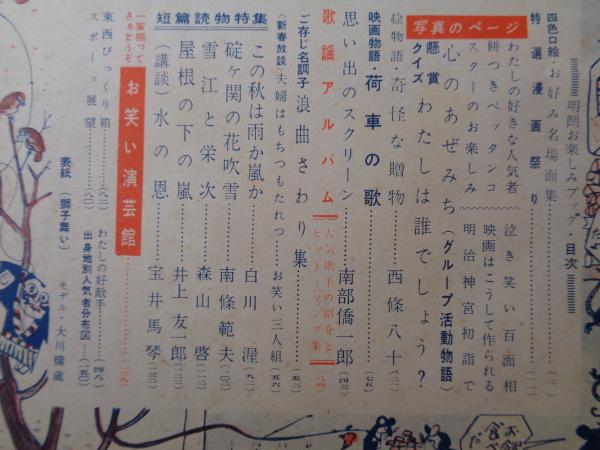 明朗お楽しみブック・目次
四色口絵・お好み名場面集……(一)
特選漫画祭り……
写真のページ
わたしの好きな人気者
餅つきペッタンコ
スターのお楽しみ
泣き笑い百面相
映画はこうして作られる
明治神宮初詣で
心のあぜみち(グループ活動物語)
懸賞クイズ わたしは誰でしょう?
絵物語・奇怪な贈物……西條八十
映画物語・荷車の歌……(七五)
思い出のスクリーン……南部僑一郎(四三)
歌謡アルバム 人気歌手の紹介とヒット・ソング集
ご存じ名調子 浪曲さわり集……(五二)
(新春放談)夫婦はもちつもたれつ……お笑い三人組(五六)
短篇読物特集
この秋は雨か嵐か……白川渥(九二)
碇ヶ関の花吹雪……南條範夫(一〇三)
雪江と栄次……森山啓(一一三)
屋根の下の嵐……井上友一郎(一二三)
(講談)水の恩……宝井馬琴(一三三)
一家揃ってさあどうぞ お笑い演芸館
東西びっくり箱……(八二)
スポーツ展望……(八八)
わたしの好敵手……(四八)
出身地別人気者分布図……(五〇)
表紙(獅子舞い) モデル・大川橋蔵